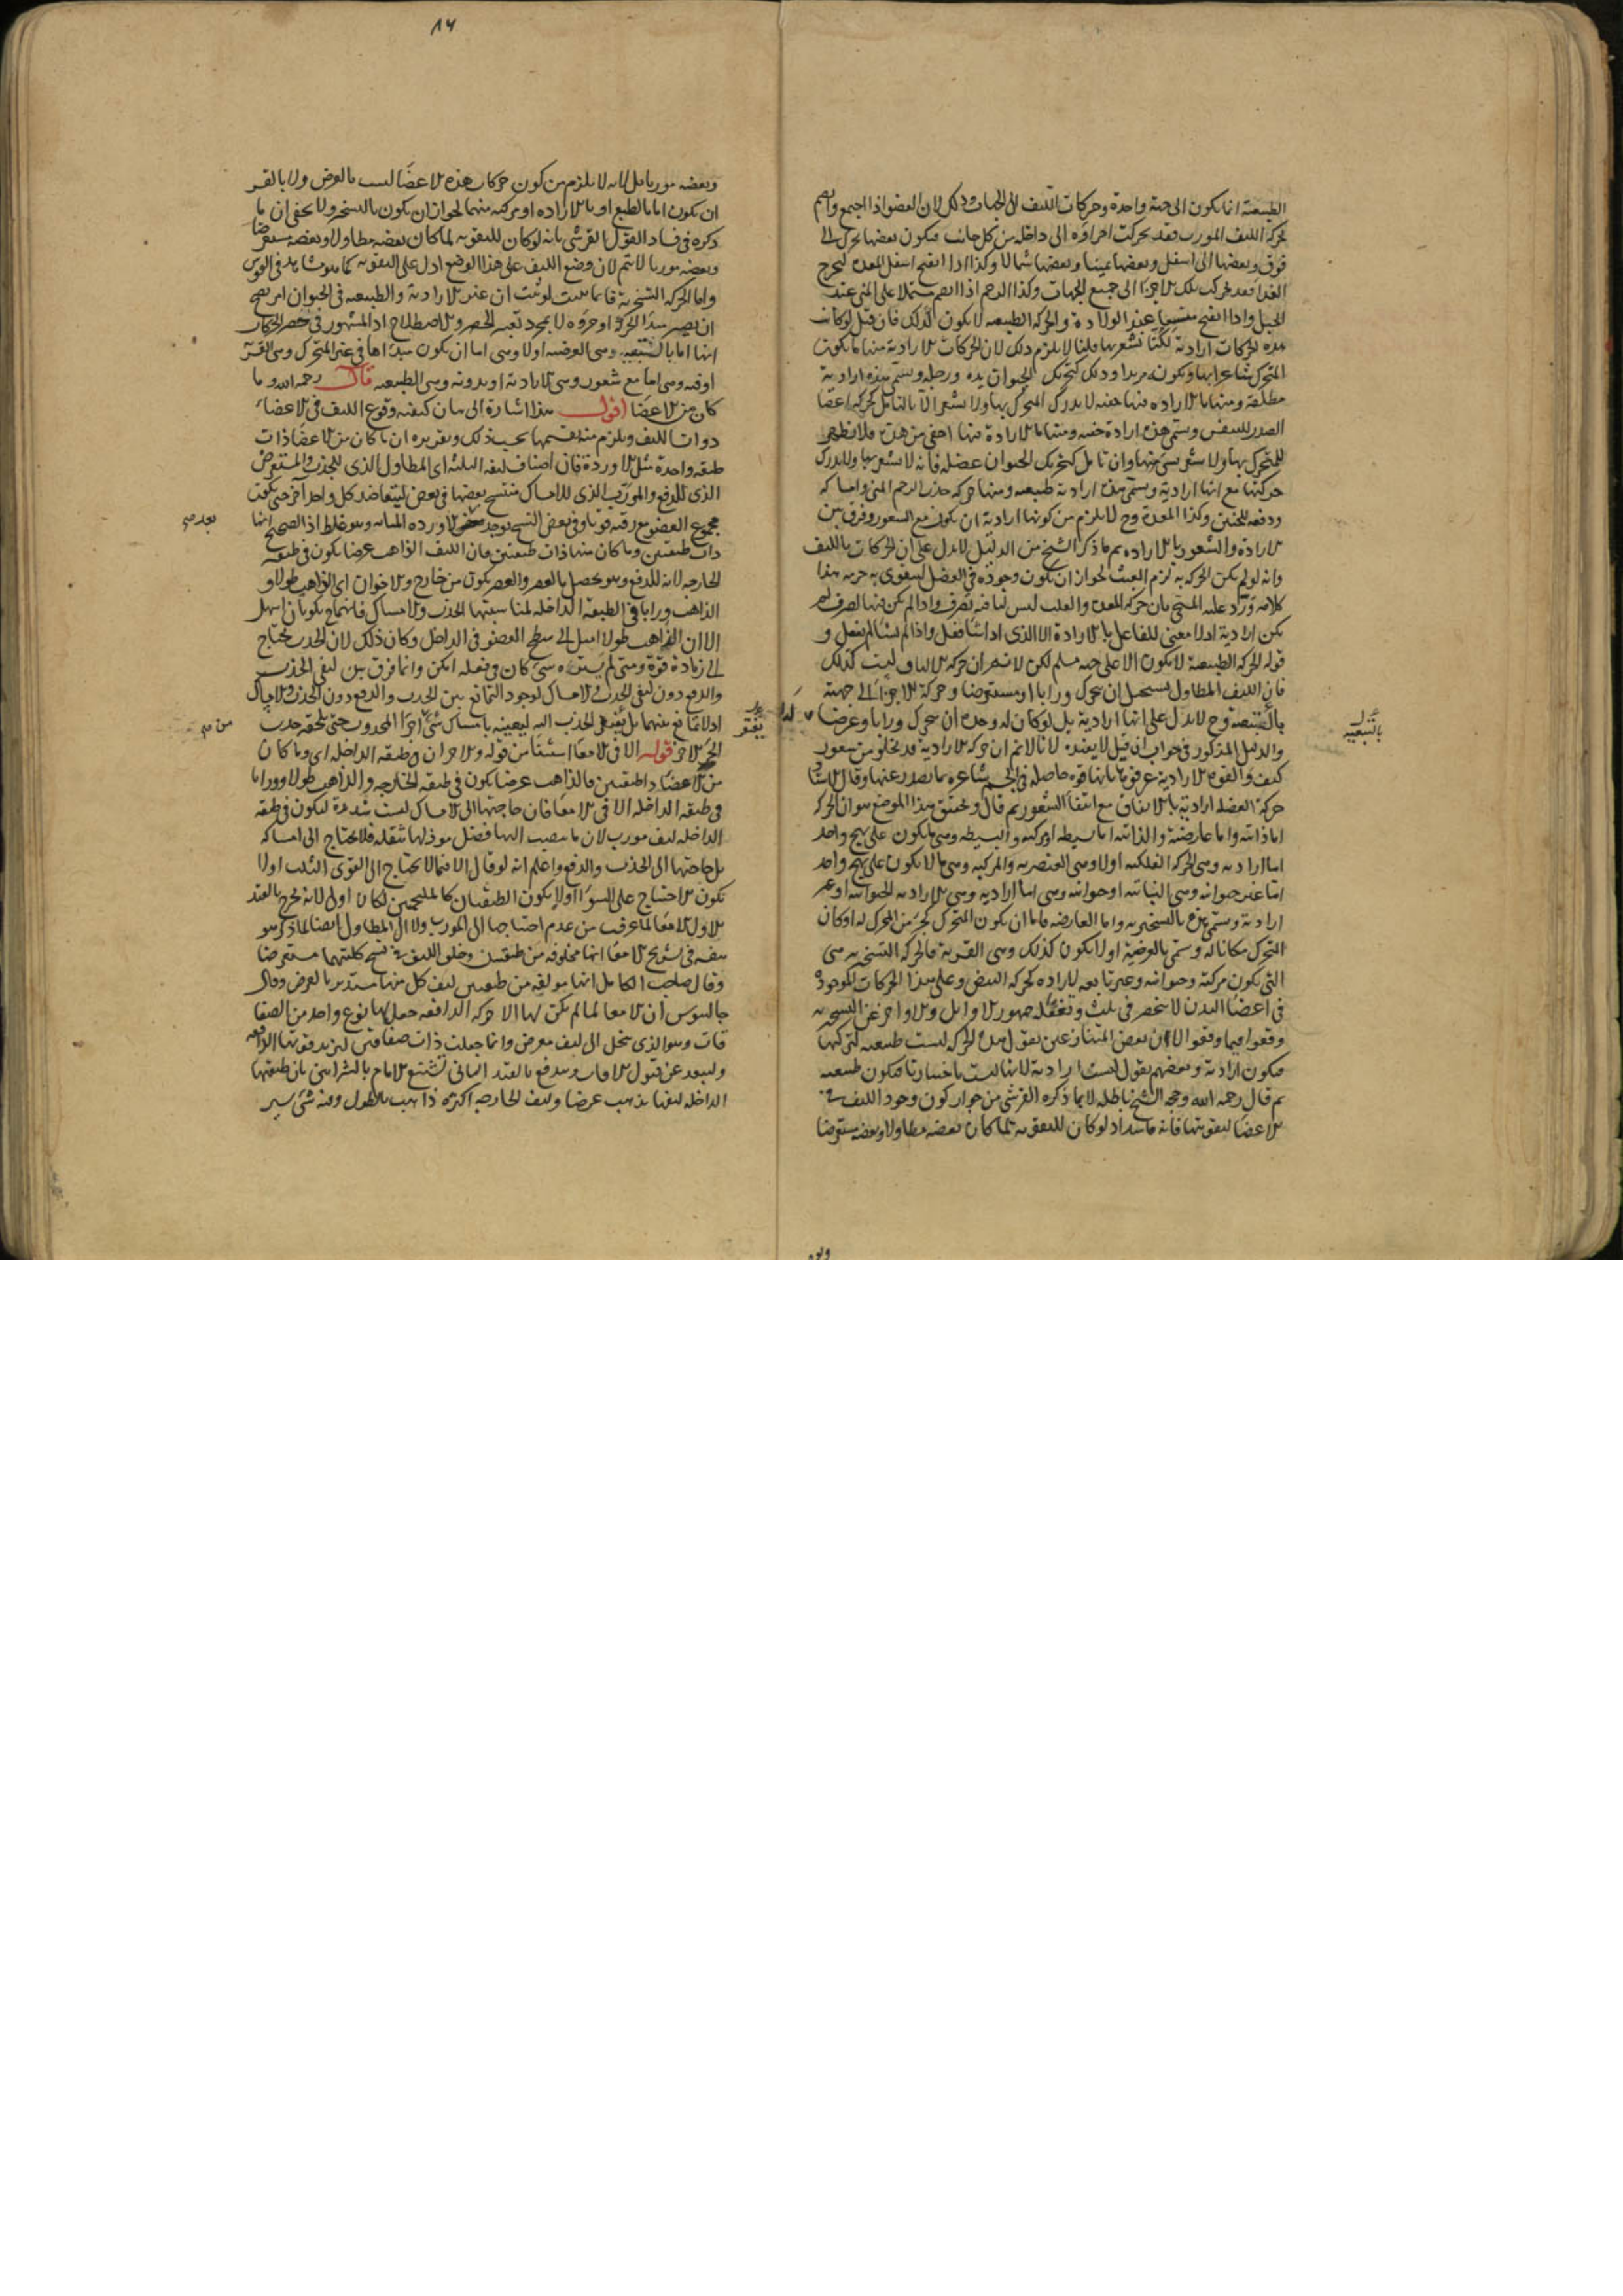 الطبيعية انما يكون الى جهة واحدة وحركات الليف الى الجهات وذلك لان العضو اذا اجتمع وانضم
بحركة الليف المورب فقد تحركت اجزاؤه الى داخله من كل جانب فيكون بعضها تحرك الى
فوق وبعضها الى اسفل وبعضها يمينا وبعضها شمالا وكذا اذا انفتح اسفل المعدة ليخرج
الغذا فقد تحركت تلك الاجزا الى جميع الجهات وكذا الرحم اذا انضم مشتملا على المنى عند
الحبل واذا انفتح عند الولادة والحركة الطبيعية لا يكون كذلك فان قيل لو كانت
هذه الحركات ارادية لكنا نشعر بها قلنا لا يلزم ذلك لان الحركات الارادية منها ما يكون
المتحرك شاعرا بها ويكون مريدا وذلك كتحريك الحيوان يده ورجله ويسمى هذه ارادية
مطلقة ومنها ما الارادة فيها خفية لا يدرك المتحرك بها ولا يشعر الا بالتامل كحركة اعضا
الصدر للتنفس ويسمى هذه ارادة خفية ومنها ما الارادة فيها اخفى من هذه فلا يظهر
للمتحرك بها ولا يشعر بشى منها وان تامل كتحريك الحيوان عضله فانه لا يشعر بها ولا يدرك
حركتها مع انها ارادية ويسمى هذه ارادية طبيعية ومنها حركة جذب الرحم المنى وامساكه
ودفعه للجنين وكذا المعدة وح لا يلزم من كونها ارادية ان يكون مع الشعور وفرق بين
الارادة والشعور بالارادة ثم ما ذكر الشيخ من الدليل لا يدل على ان الحركات بالليف
وانه لو لم يكن الحركة به لزم العبث لجواز ان يكون وجوده في العضل ليتقوى به جرمه هذا
كلامه ورد عليه المسيحي بان حركة المعدة والقلب ليس لنا فيه تصرف واذا لم يكن فيها تصرف لم
يكن ارادية اذ لا معنى للفاعل بالارادة الا الذى اذا شا فعل واذا لم يشا لم يفعل و
قوله الحركة الطبيعية لا يكون الا على جهة مسلم لكن لا نسلم ان حركة الالياف ليست كذلك
فان الليف المطاول يستحيل ان يتحرك ورابا او مستعرضا وحركة الاجزا الى جهة
بالتبعية وح لا يدل على انها ارادية بل لو كان له وحده ان يتحرك ورابا وعرضا
والدليل المذكور في جواب ان قيل لا يفيد لانا لا نم ان حركة الارادية قد تخلو من شعور
كيف والقوم الارادية عرفوها بانها قوة حاصلة في الجسم شاعرة بما يصدر عنها وقال
حركة العضلة ارادية بالاتفاق مع انتفا الشعور ثم قال وتحقيق هذا الموضع هو ان الحركة
اما ذاتية واما عارضة والذاتية اما بسيطة او مركبة والبسيطة وهى ما يكون على نهج واحد
اما ارادية وهى الحركة الفلكية اولا وهى العنصرية والمركبة وهى ما لا يكون على نهج واحد
اما غير حيوانية وهى النباتية او حيوانية وهى اما ارادية وهى الارادية الحيوانية او غير
ارادية وتسمى هذه بالتسخيرية واما العارضة فاما ان يكون المتحرك كجزء من المحرك له او كان
المتحرك مكانا له وتسمى بالعرضية او لا يكون كذلك وهى القسرية فالحركة التسخيرية هى
التى يكون مركبة وحيوانية وغير تابعة لارادة كحركة النبض وعلى هذا الحركات الموجودة
في اعضا البدن لا تنحصر في ثلث جمهور الاوايل والاواخر عن التسخيرية
وقعوا فيما وقعوا الا ان بعض المتنازعين يقول هذه الحركة ليست طبيعية لتركبها
فيكون ارادية وبعضهم يقول ليست ارادية لانها ليست باختيارنا فيكون طبيعية
ثم قال رحمه الله وحجة الشيخ باطلة لا بما ذكره القرشى من جواز كون وجود الليف في
الاعضا لتقويتها فانه فاسد اذ لو كان للتقوية لما كان بعضه مطاولا وبعضه مستعرضا
بالتبعية
١٦
وبعضه موربا بل لانه لا يلزم من كون حركات هذه الاعضا ليست بالعرض ولا بالقسر
ان يكون اما بالطبع او بالارادة او مركبة منهما لجواز ان يكون بالتسخير ولا يخفى ان ما
ذكره في فساد القول القرشى بانه لو كان للتقوية لما كان بعضه مطاولا وبعضه مستعرضا
وبعضه موربا لا يتم لان وضع الليف على هذا الوضع ادل على التقوية كما هو مشاهد في القوس
واما الحركة التسخيرية فانما يثبت لو ثبت ان غير الارادية والطبيعية في الحيوان امر يصح
ان يصير مبدا الحركة او جزؤه لا بمجرد تغيير الحصر والاصطلاح اذ المشهور في حصر الحركات
انها اما بالتبعية وهى العرضية اولا وهى اما ان يكون مبداها في غير المتحرك وهى القسرية
او فيه وهى اما مع شعور وهى الارادية او بدونه وهى الطبيعية قال رحمه الله وما
كان من الاعضا اقول هذا اشارة الى بيان كيفية وقوع الليف في الاعضاء
ذوات الليف ويلزم منه تقسيمها بحسب ذلك وتقريره ان ما كان من الاعضا ذات
طبقة واحدة مثل الاوردة فان اصناف ليفه الثلثة اى المطاول الذى للجذب والمستعرض
الذى للدفع والمورب الذى للامساك منتسج بعضها في بعض ليتعاضد كل واحد بآخر حتى يكون
مجموع العضو مع رقته قويا وفي بعض النسخ يوجد الاوردة المثانة وهو غلط اذ الصحيح انها
ذات طبقتين وما كان منها ذات طبقتين فان الليف الذاهب عرضا يكون في طبقته
الخارجة لانه للدفع وهو يحصل بالعصر والعصر يكون من خارج والاخوان اى الذاهب طولا و
الذاهب ورابا في الطبقة الداخلة لمناسبتها الجذب والامساك فانهما يكونان اسهل
الا ان الذاهب طولا اميل الى سطح العضو في الداخل وكان ذلك لان الجذب يحتاج
الى زيادة قوة ومتى لم يستره شى كان فعله امكن وانما فرق بين ليفى الجذب
والدفع دون ليفى الجذب والامساك لوجود التمانع بين الجذب والدفع دون الجذب والامساك
اذ لا تمانع بينهما بل يفتقر الجذب اليه ليعينه بامساك شى من اجزا المجذوب حتى يلحقه جذب
الجزء الاخر قوله الا في الامعا استثنا من قوله والاخران في طبقته الداخلة اى وما كان
من الاعضا ذا طبقتين فالذاهب عرضا يكون في طبقته الخارجة والذاهب طولا وورابا
في طبقته الداخلة الا في الامعا فان حاجتها الى الامساك ليست شديدة ليكون في طبقته
الداخلة ليف مورب لان ما ينصب اليها فضل موذ لها بثقله فلا يحتاج الى امساكه
بل حاجتها الى الجذب والدفع واعلم انه لو قال الا فيما لا يحتاج الى القوى الثلث اولا
يكون الاحتياج على السواء اولا يكون الطبقتان كالملتحمتين لكان اولى لانه يخرج بالقيد
الاول الامعا لما عرفت من عدم احتياجها الى المورب ولا الى المطاول ايضا لما ذكر هو
بنفسه في تشريح الامعا انها مخلوقة من طبقتين وخلق الليف في نسج كلتيهما مستعرضا
وقال صاحب الكامل انها مولفة من طبقتين ليف كل منها مستدير بالعرض وقال
جالينوس ان الامعا لما لم يكن لها الا حركة الدافعة جعل لها نوع واحد من الصفا
قات وهو الذى ينحل الى ليف معرض وانما جعلت ذات صفاقين ليزيد قوتها الدافعة
وليبعد عن قبول الآفات ويندفع بالقيد الثانى تشنيع الامام بالشرايين بان طبقتها
الداخلة ليفها يذهب عرضا وليف الخارجة اكثره ذاهب بالطول وفيه شى يسير
بعد صح
من صح
يفتقر